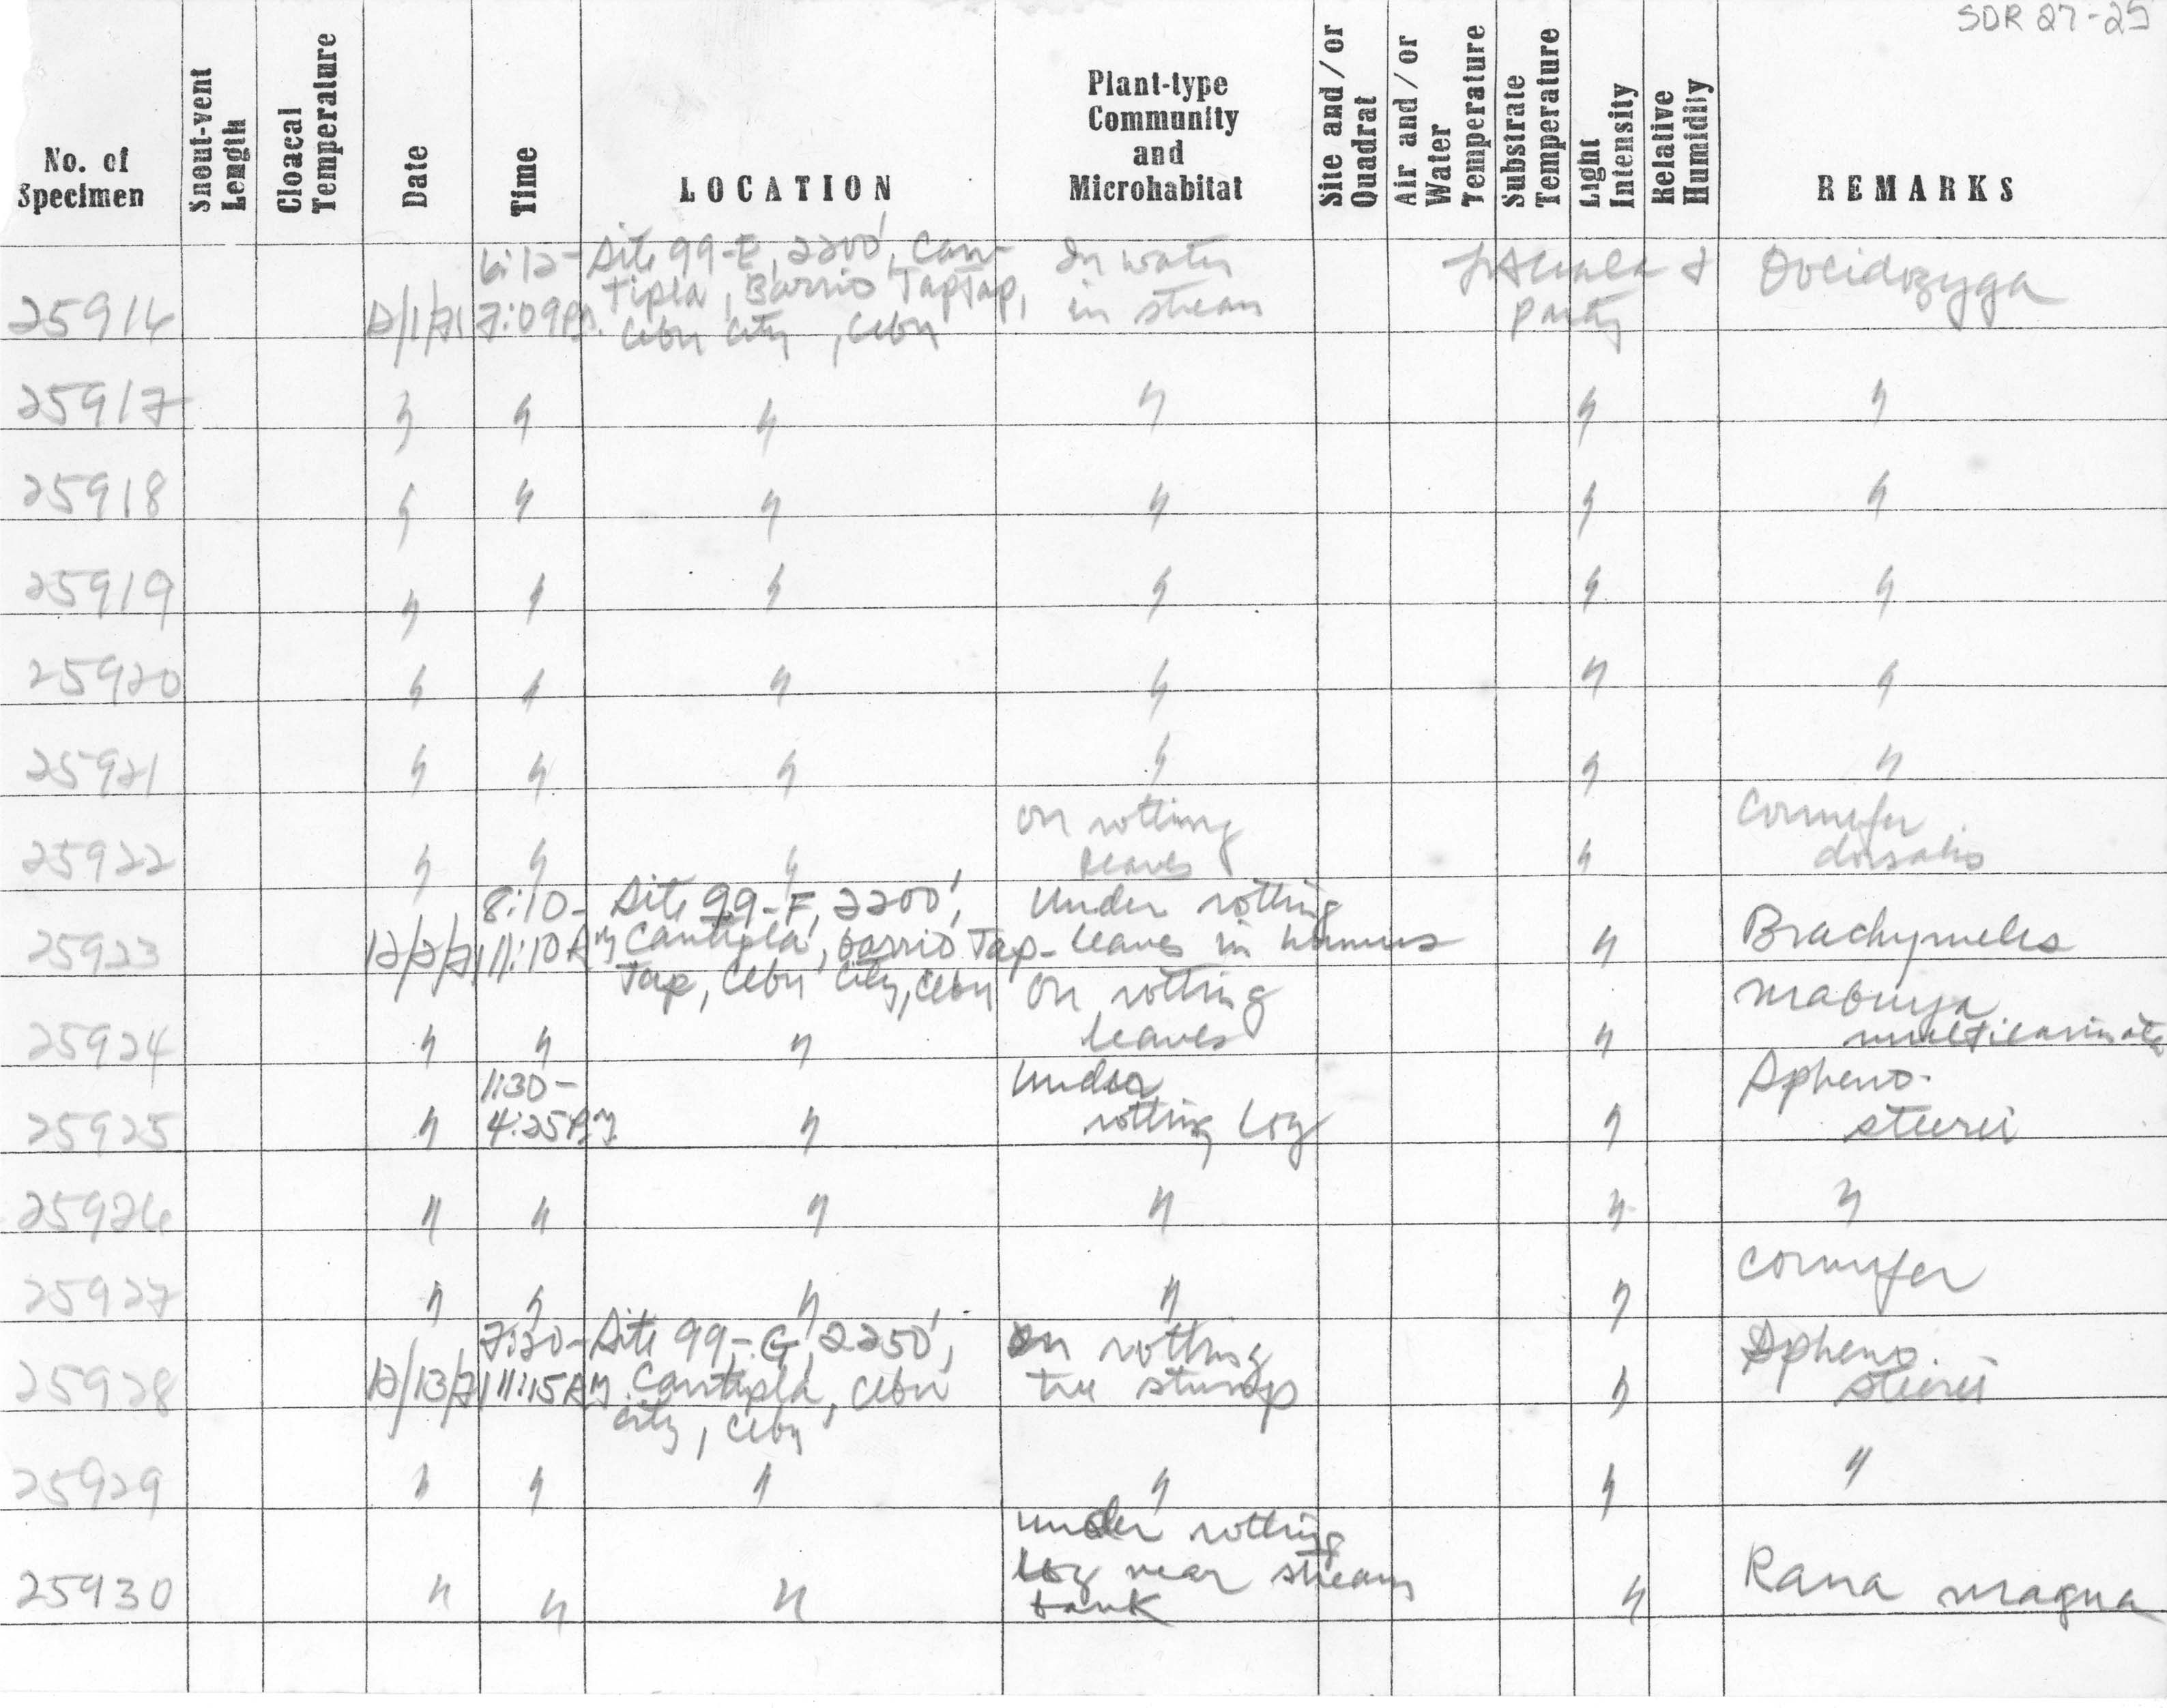 SDR 27-25
No. of Specimen
Snout-vent Length
Cloacal Temperature
Date
Time
LOCATION
Plant-type Community and Microhabitat
Site and/or Quadrat
Air and/or Water Temperature
Substrate Temperature
Light Intensity
Relative Humidity
REMARKS
25916 12/1/71 6:12- 7:09 Pm. Site 99-E, 2200', Can- tipla, Barrio TapTap, Cebu City, Cebu In water in stream LAlcala & party Ooeidozyga
25917 " " " " " "
25918 " " " " " "
25919 " " " " " "
25920 " " " " " "
25921 " " " " " "
25922 " " " on rotting leaves " Cornufer dorsalis
25923 12/2/71 8:10- 11:10 Am Site 99-F, 2200', Cantipla, barrio Tap- Tap, Cebu City, Cebu Under rotting leaves in humus " Brachymeles
25924 " " " On rotting leaves " Mabuya multicarinata
25925 " 1:30- 4:25 Pm. " Under rotting log " Spheno. steerei
25926 " " " " " "
25927 " " " " " Cornufer
25928 12/13/71 7:20- 11:15 Am Site 99-G, 2250', Cantipla, Cebu City, Cebu On rotting tree stump " Spheno. steerei
25929 " " " " " "
25930 " " " under rotting log near stream bank " Rana magna